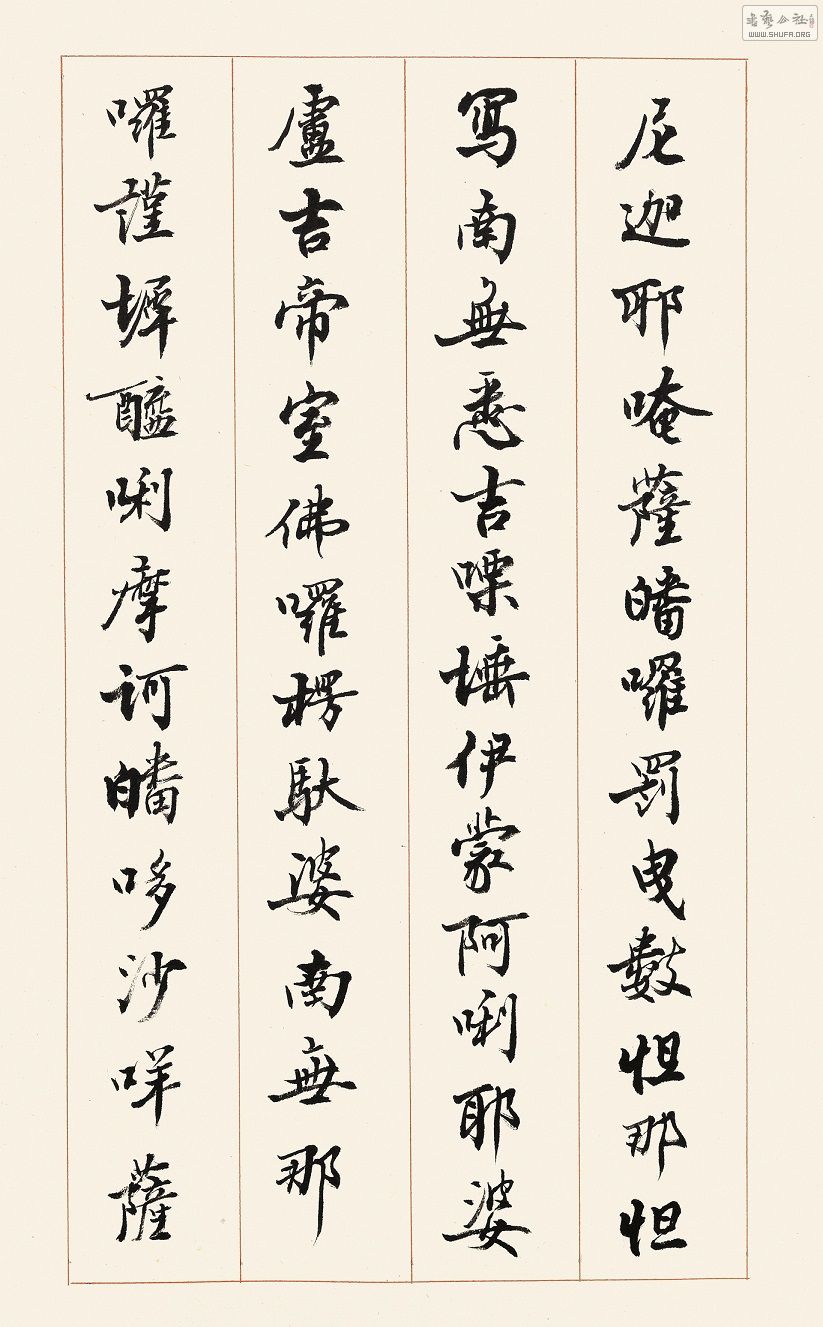 尼迦耶唵薩皤囉罰曳數怛那怛
寫南無悉吉嘌埵伊蒙阿唎耶婆
盧吉帝室佛囉楞馱婆南無那
囉謹墀醯唎摩訶皤哆沙咩薩
書藝公社
WWW.SHUFA.ORG